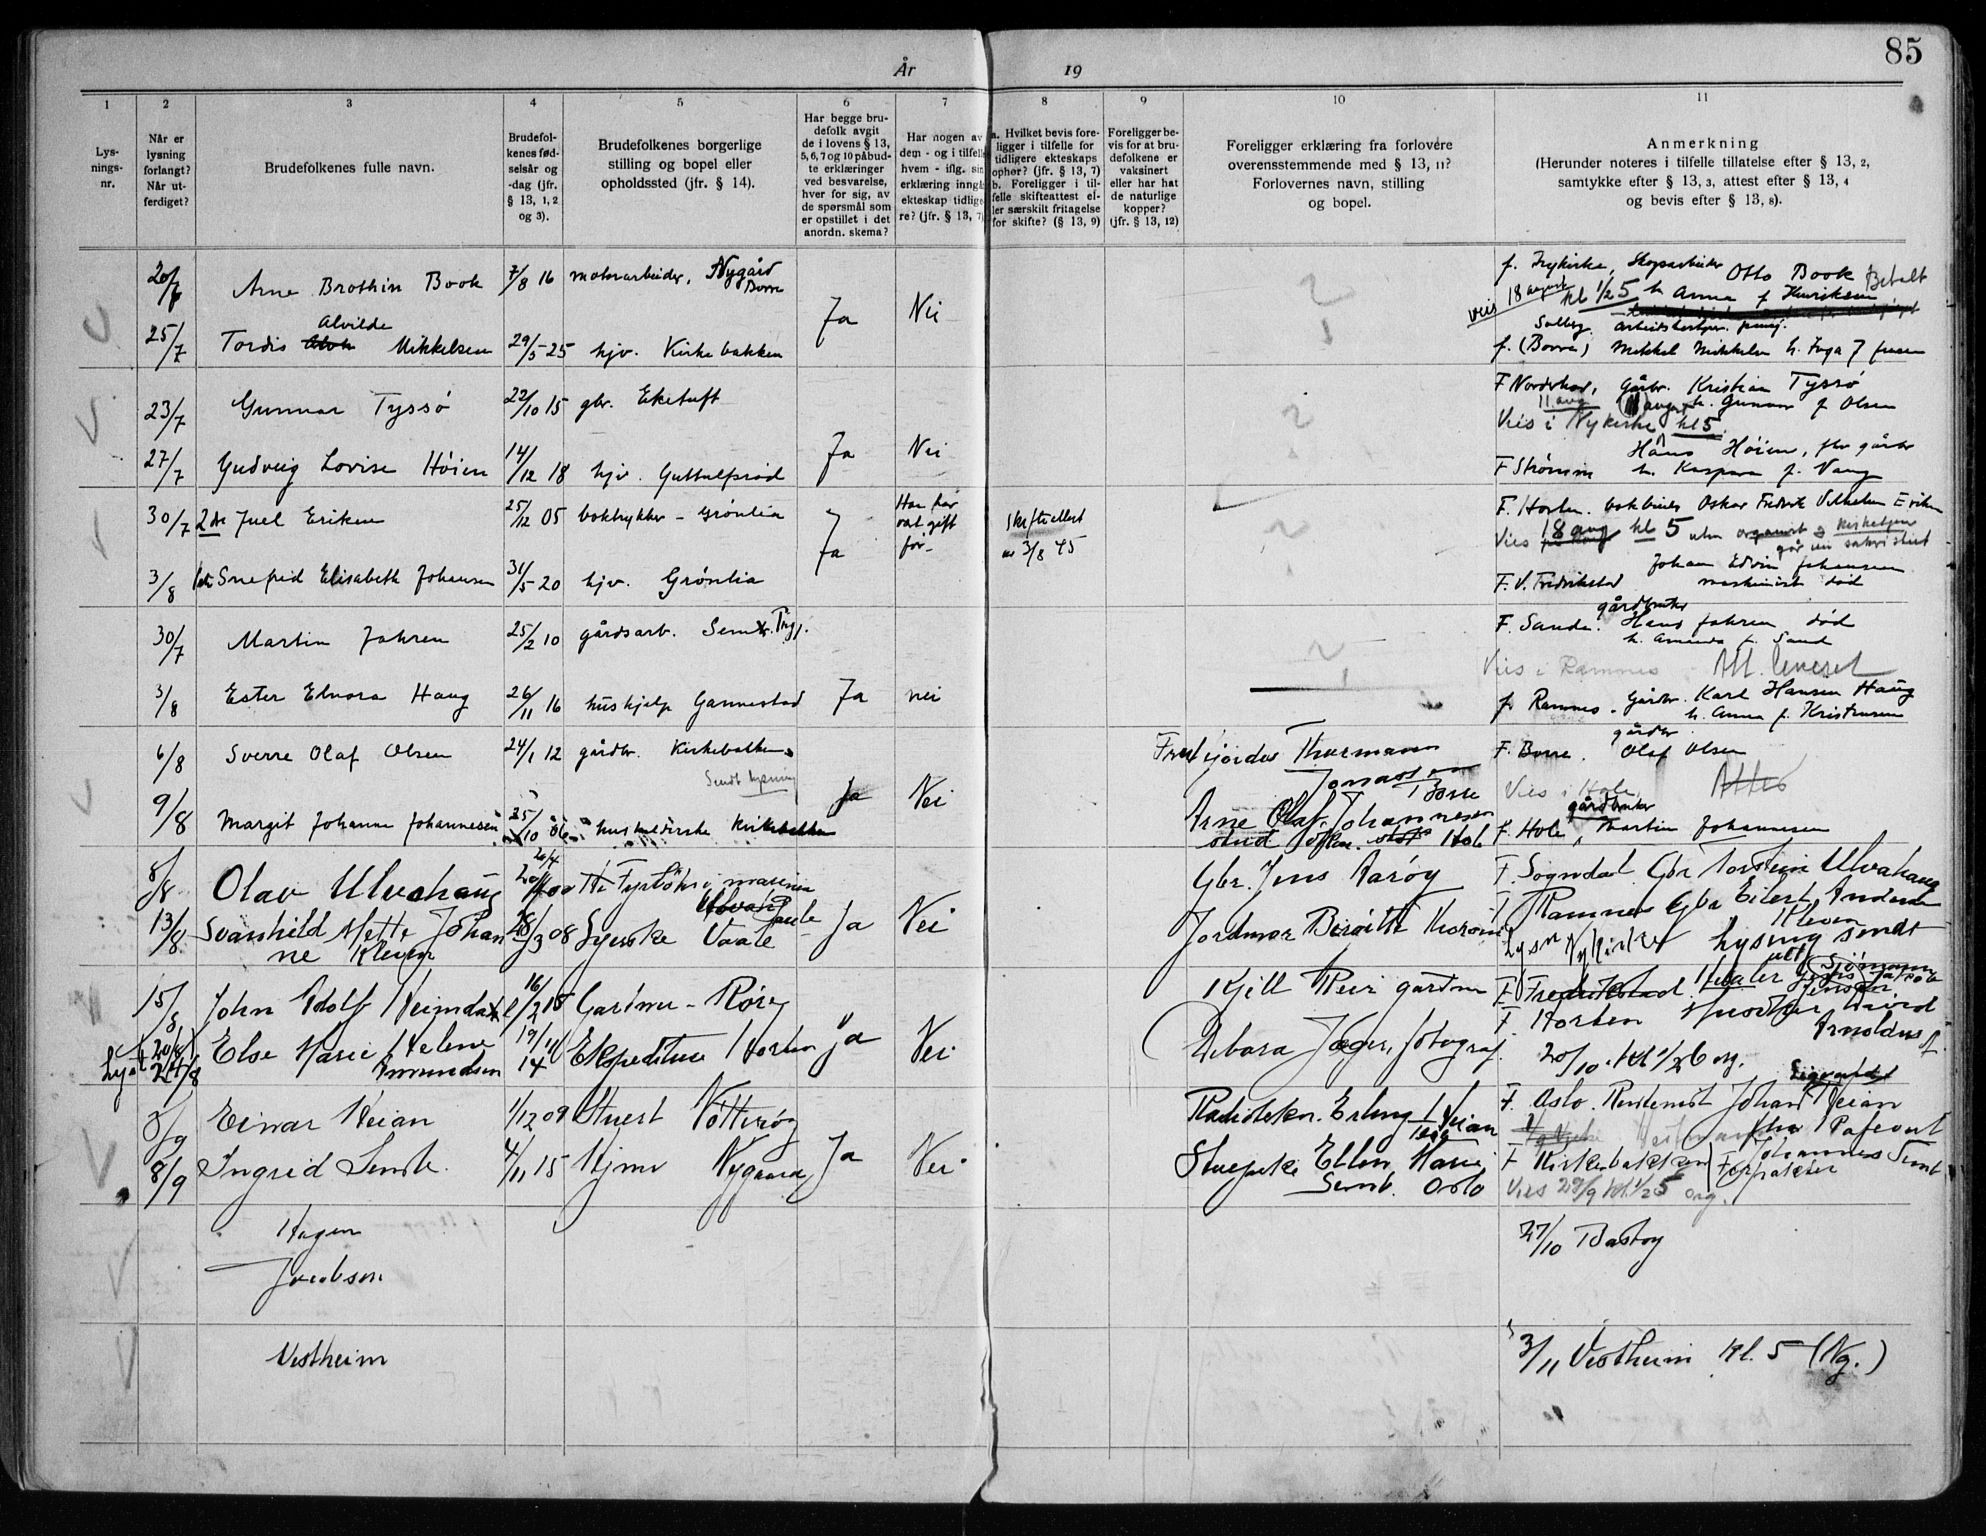 85
År 19
1 2 3 4 5 6 7 8 9 10 11
Lys-
nings-
nr.
Når er
lysning
forlangt?
Når ut-
ferdiget?
Brudefolkenes fulle navn.
Brudefol-
kenes fød-
selsår og
-dag (jfr.
§ 13, 1, 2
og 3).
Brudefolkenes borgerlige
stilling og bopel eller
opholdssted (jfr. § 14).
Har begge bru-
defolk avgit
de i lovens § 13,
5, 6, 7 og 10 påbud-
te erklæringer
ved besvarelse,
hver for sig, av
de spørsmål som
er opstillet i det
anordn. skema?
Har nogen av
dem - og i tilfelle
hvem - iflg. sin
erklæring inngå
ekteskap tidlige-
re? (jfr. § 13, 7)
a. Hvilket bevis fore-
ligger i tilfelle for
tidligere ekteskaps
ophør? (jfr. § 13, 7)
b. Foreligger i til-
felle skifteattest el-
ler særskilt fritagelse
for skifte? (§ 13, 9)
Foreligger be-
vis for at bru-
defolkene er
vaksinert
eller har hat
de naturlige
kopper?
(jfr. § 13, 12)
Foreligger erklæring fra forlovere
overensstemmende med § 13, 11?
Forlovernes navn, stilling
og bopel.
Anmerkning
(Herunder noteres i tilfelle tillatelse efter § 13, 2,
samtykke efter § 13, 3, attest efter § 13, 4
og bevis efter § 13, 8).
20/7 Arne Brothin Book 7/8 16 motorarbeider, Nygård Borre
f. Nykirke, Otto Book Betalt
Vies 18 august kl 1/2 5 h. Anna f Henriksen
25/7 Tordis Alvilde Mikkelsen 29/5 25 hjv. Kirkebakken Ja Nei
Solberg
f. (Borre) Mikkel Mikkelsen h. Inga f Jensen
23/7 Gunnar Tyssö 22/10 15 gbr. Eketuft
F Norderhov, Gårbr. Kristian Tyssö
11 aug h. Gunvor f Olsen
Vies i Nykirke kl 5
27/7 Gudveig Lovise Höien 14/12 18 hjv. Guttulfsrød Ja Nei
Hans Höien, gårbr
F Strömm h. Kaspara f. Vang
30/7 2det Juel Eriksen 25/12 05 boktrykker - Grönlia Ja Har før vært gift før- Skifteattest av 3/8 45
F. Horten. bokbinder Oskar Fredrik Vilhelm Eriksen
Vies 18 aug kl 5 uten organist & kirketjener
3/8 1ste Snefrid Elisabeth Johansen 31/5 20 hjv. Grönlia
Johan Edvin Johansen
F. V. Fredrikstad maskinist död
30/7 Martin Jahren 25/2 10 gårdsarb. Sem
F. Sande. gårdbruker Hans Jahren död
h. Amanda f. Sand
Vies i Ramnes Att. leveret
3/8 Ester Elnora Haug 26/11 16 hushjelp Gannestad Ja nei
f. Ramnes. Gårdbr. Karl Hansen Haug
h. Anna f. Kristensen
6/8 Sverre Olaf Olsen 24/1 12 gårdbr. Kirkebakken
Sendt lysning
Thormann Jonassen Borre
F. Borre. gårdbr Olaf Olsen
Vies i Hole. Attest
9/8 Margit Johanne Johannesen 25/10 hushold. Kirkebakken Ja Nei
Arne Olaf Johannesen
stud Hole
F. Hole, gårdbruker Martin Johannesen
8/8 Olav Ulvahaug 20/4 00 Fyrbøter i marinen
Gbr. Jens Aarøy
F. Sogndal. Gbr Torstein Ulvahaug
13/8 Svanhild Mette Johanne Kleven 28/3 08 Syerske Vaale Ja Nei
Jordmor Birgitte
F Ramnes Gbr Eilert Andersen Kleven
Lyst Nykirke Lysing sendt
15/8 John Adolf Heimdal 16/2 15 Gartner - Røre
Kjell gartner
F Fredrikstad. Hvaler Sjømann Jensen
20/8 Else Marie Helene Amundsen 19/11 14 Ekspeditrise Horten Ja Nei
lyst 24/8
Debora Jæger, fotograf.
F. Horten Snedker
Arnoldus A.
20/10. Kl 1/2 6 org.
8/9 Einar Heian 1/12 09 Stuert Nøtterøy
Radiotekn. Erling Heian
F. Oslo. Rentenist Johan Sigvardt Heian
8/9 Ingrid Semb 4/11 15 Hjmv Nygaard Ja Nei
Stuepike Ellen Marie Semb. Oslo
F Kirkebakken Forpakter Johannes Semb
Vies 29/9 kl. 1/2 5 org.
Hagen
Jacobsen
27/10 Bastøy
Vestheim
3/11 Vestheim Kl. 5 (Ny.)